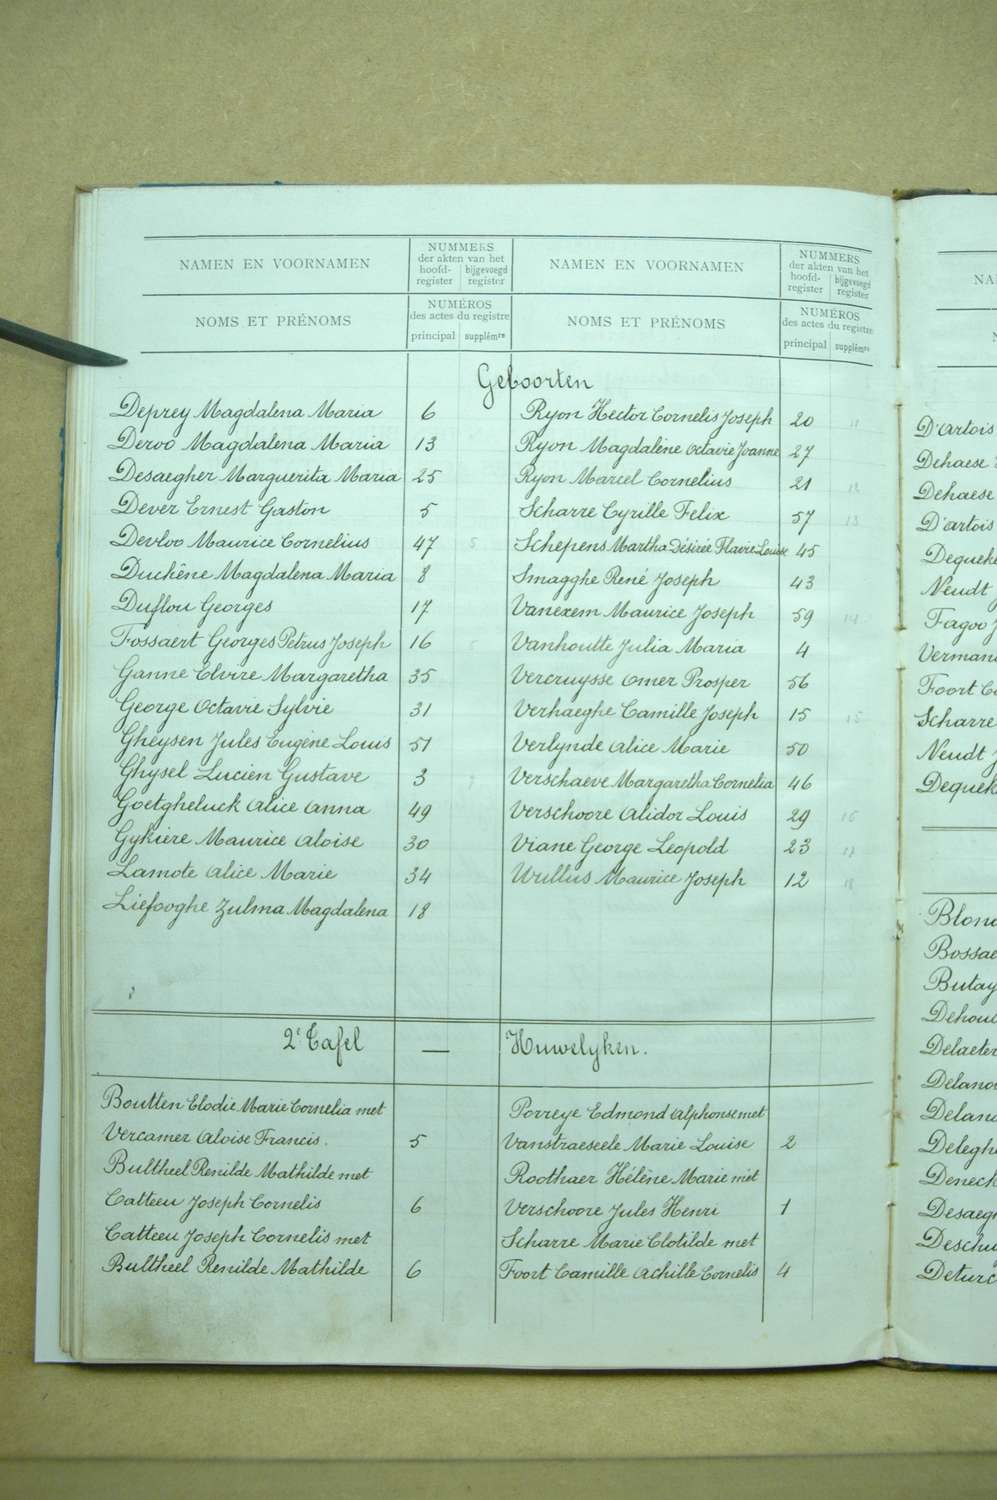 NAMEN EN VOORNAMEN
NUMMERS
der akten van het
hoofd-register
bijgevoegd register
NOMS ET PRÉNOMS
NUMÉROS
des actes du registre
principal supplémre
NAMEN EN VOORNAMEN
NUMMERS
der akten van het
hoofd-register
bijgevoegd register
NOMS ET PRÉNOMS
NUMÉROS
des actes du registre
principal supplémre
Geboorten
Deprey Magdalena Maria 6
Deroo Magdalena Maria 13
Desaegher Marguerita Maria 25
Dever Ernest Gaston 5
Devloo Maurice Cornelius 47
Duchêne Magdalena Maria 8
Duflou Georges 17
Fossaert Georges Petrus Joseph 16
Ganne Elvire Margaretha 35
George Octavie Sylvie 31
Gheysen Jules Eugène Louis 51
Ghysel Lucien Gustave 3
Goetgheluck Alice Anna 49
Gykiere Maurice Aloise 30
Lamote Alice Marie 34
Liefooghe Zulma Magdalena 18
Ryon Hector Cornelis Joseph 20
Ryon Magdalène Octavie Joanne 27
Ryon Marcel Cornelius 21
Scharre Cyrille Felix 57
Schepens Martha Désirée Flavie Louise 45
Smagghe René Joseph 43
Vanexem Maurice Joseph 59
Vanhoutte Julia Maria 4
Vercruysse Omer Prosper 56
Verhaeghe Camille Joseph 15
Verlynde Alice Marie 50
Verschaeve Margaretha Cornelia 46
Verschoore Alidor Louis 29
Viane George Leopold 23
Wullus Maurice Joseph 12
2e Tafel — Huwelyken.
Boutten Elodie Marie Cornelia met
Vercamer Aloise Francis. 5
Bultheel Renilde Mathilde met
Catteeu Joseph Cornelis 6
Catteeu Joseph Cornelis met
Bultheel Renilde Mathilde 6
Porreye Edmond Alphonse met
Vanstraeseele Marie Louise 2
Roothaer Hélène Marie met
Verschoore Jules Henri 1
Scharre Marie Clotilde met
Foort Camille Achille Cornelis 4
NA
D'artois
Dehaese
Dehaese
D'artois
Dequeke
Neudt
Fagoo
Verman
Foort
Scharre
Neudt
Dequek
Blon
Bossae
Butay
Dehou
Delaeter
Delano
Delano
Delegh
Deneck
Desaeg
Deschu
Deturc